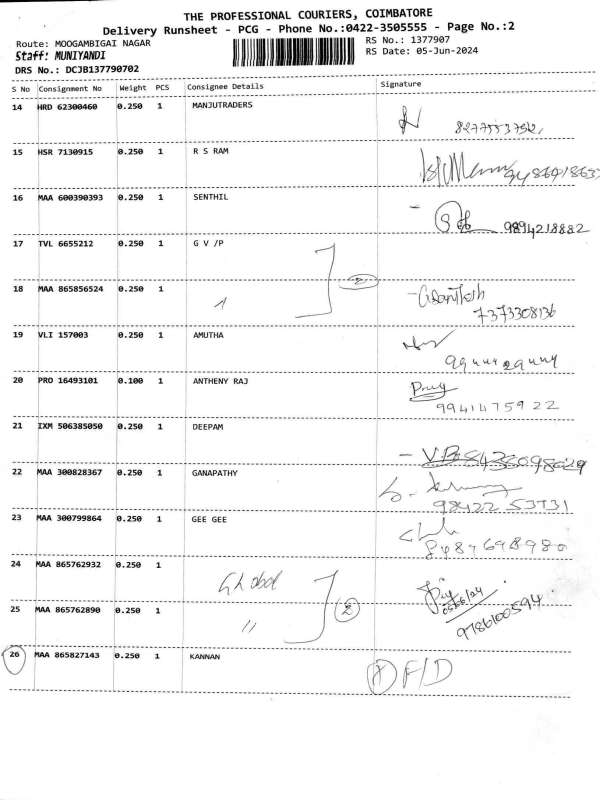 THE PROFESSIONAL COURIERS, COIMBATORE
Delivery Runsheet - PCG - Phone No.:0422-3505555 - Page No.:2
Route: MOOGAMBIGAI NAGAR
RS No.: 1377907
Staff: MUNIYANDI
RS Date: 05-Jun-2024
DRS No.: DCJB137790702
S No Consignment No Weight PCS Consignee Details Signature
14 HRD 62300460 0.250 1 MANJUTRADERS
15 HSR 7130915 0.250 1 R S RAM
16 MAA 600390393 0.250 1 SENTHIL
9894218882
17 TVL 6655212 0.250 1 G V /P
2
18 MAA 865856524 0.250 1
7373308136
19 VLI 157003 0.250 1 AMUTHA
20 PRO 16493101 0.100 1 ANTHENY RAJ
9941475922
21 IXM 506385050 0.250 1 DEEPAM
22 MAA 300828367 0.250 1 GANAPATHY
98422 53731
23 MAA 300799864 0.250 1 GEE GEE
24 MAA 865762932 0.250 1
Global
05/6/24
25 MAA 865762890 0.250 1
"
2
9786100594
26 MAA 865827143 0.250 1 KANNAN
F/D